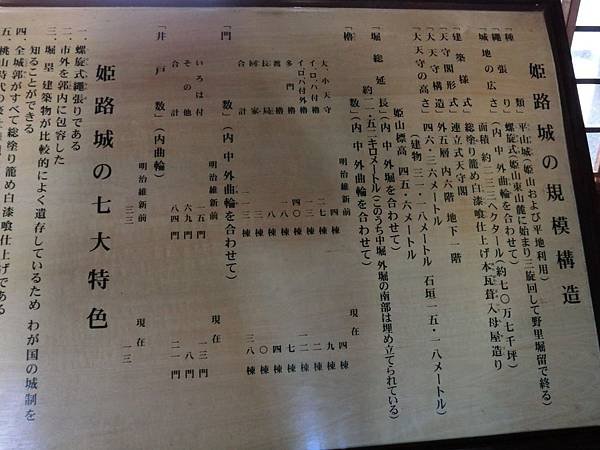 姫路城の規模構造
「種類」平山城(姫山および平地利用)
「縄張り」螺旋式(姫山東山麓に始まり三旋回して野里堀留で終る)
「城地の広さ」(内 中 外曲輪を合わせて)
面積 約二三三ヘクタール(約七〇万七千坪)
「建築様式」総塗り籠め白漆喰仕上げ本瓦葺入母屋造り
「天守閣形式」連立式天守閣
「大天守構造」外五層 内六階 地下一階
「大天守の高さ」四六・三六メートル
(建物 三一・一八メートル 石垣 一五・一八メートル)
姫山標高 四五・六メートル
「堀総延長」(内 中 外堀を合わせて)
約一一・五二キロメートル(このうち中堀 外堀の南部は埋め立てられている)
「櫓 数」(内 中 外曲輪を合わせて)
明治維新前 現在
大、小天守 四棟 四棟
イ、ロ、ハ付櫓 二七棟 九棟
イ、ロ、ハ付外櫓 一棟 二棟
渡櫓 四〇棟 一二棟
多門櫓 一八棟 七棟
長局 八棟 四棟
同家 〇棟
合計 一一三棟 三八棟
「門 数」(内 中 外曲輪を合わせて)
明治維新前 現在
いろは付 一五門 一三門
その他 六九門 八門
合計 八四門 二一門
「井戸 数」(内曲輪)
明治維新前 現在
三三 一三
姫路城の七大特色
一、螺旋式縄張りである
二、市外を郭内に包容した
三、堀 塁 建築物が比較的によく遺存しているため わが国の城制を
知ることができる
四、全城郭がすべて総塗り籠め白漆喰仕上げである
五、桃山時代の